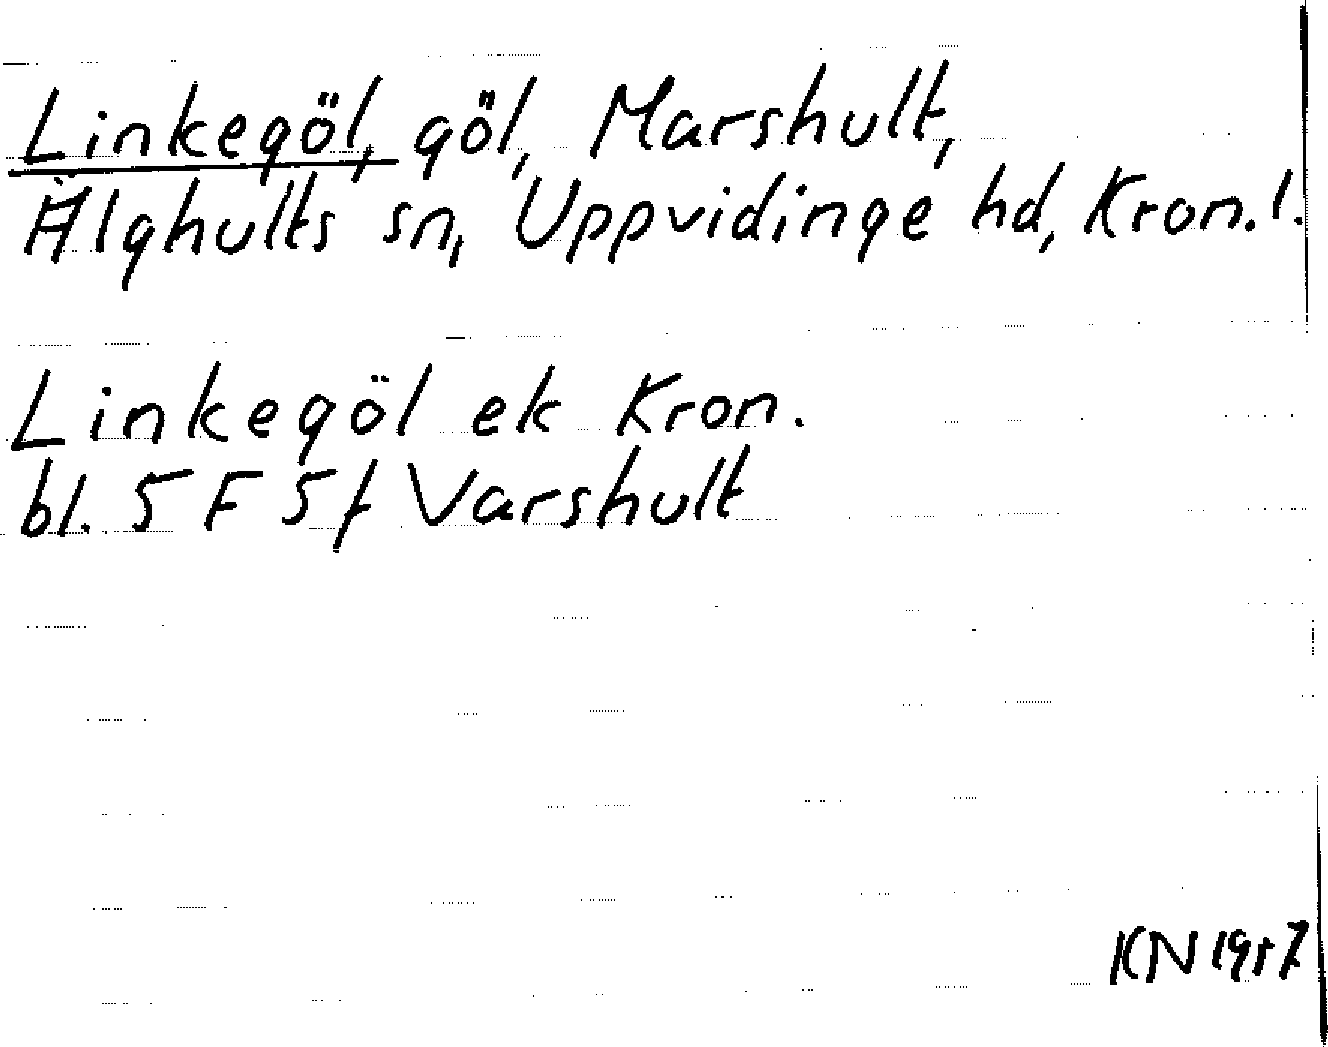 Linkegöl, göl, Marshult,
Älghults sn, Uppvidinge hd, Kron. l.
Linkegöl ek Kron.
bl. 5 F 5 f Varshult
KN